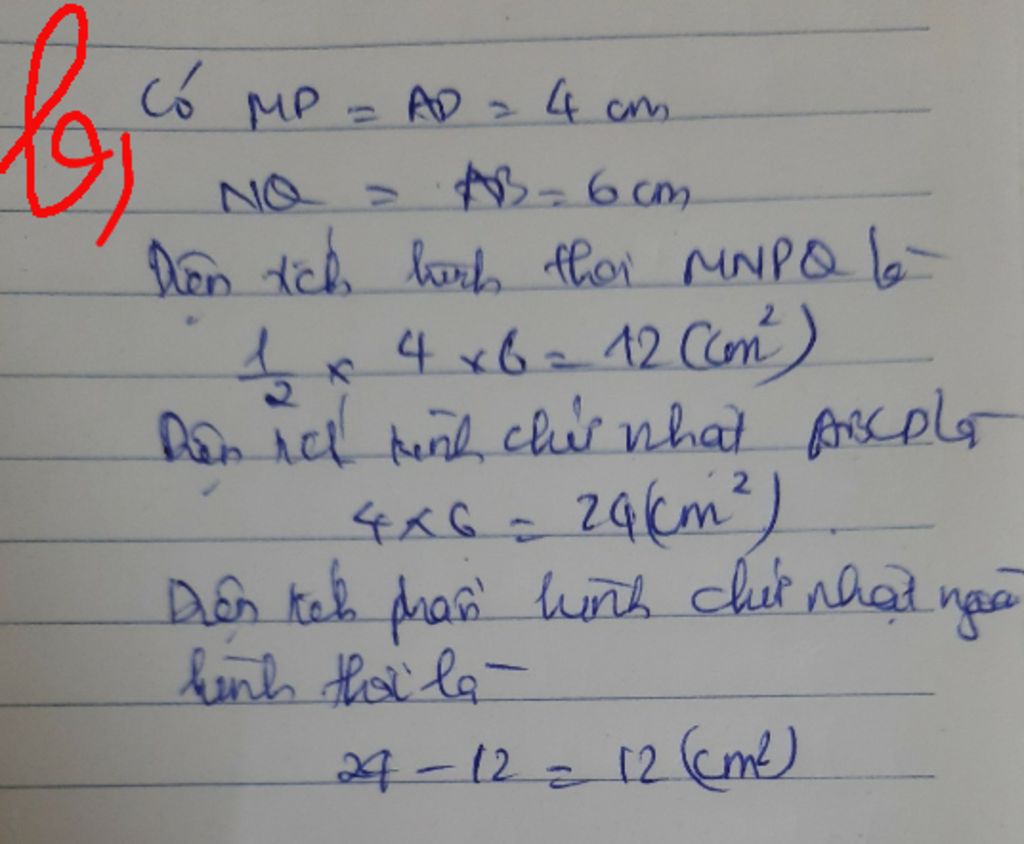 b,
Có MP = AD = 4 cm
NQ = AB = 6 cm
Diện tích hình thoi MNPQ là
1/2 x 4 x 6 = 12 (cm²)
Diện tích hình chữ nhật ABCD là
4 x 6 = 24 (cm²)
Diện tích phần hình chữ nhật ngoà
hình thoi là
24 - 12 = 12 (cm²)